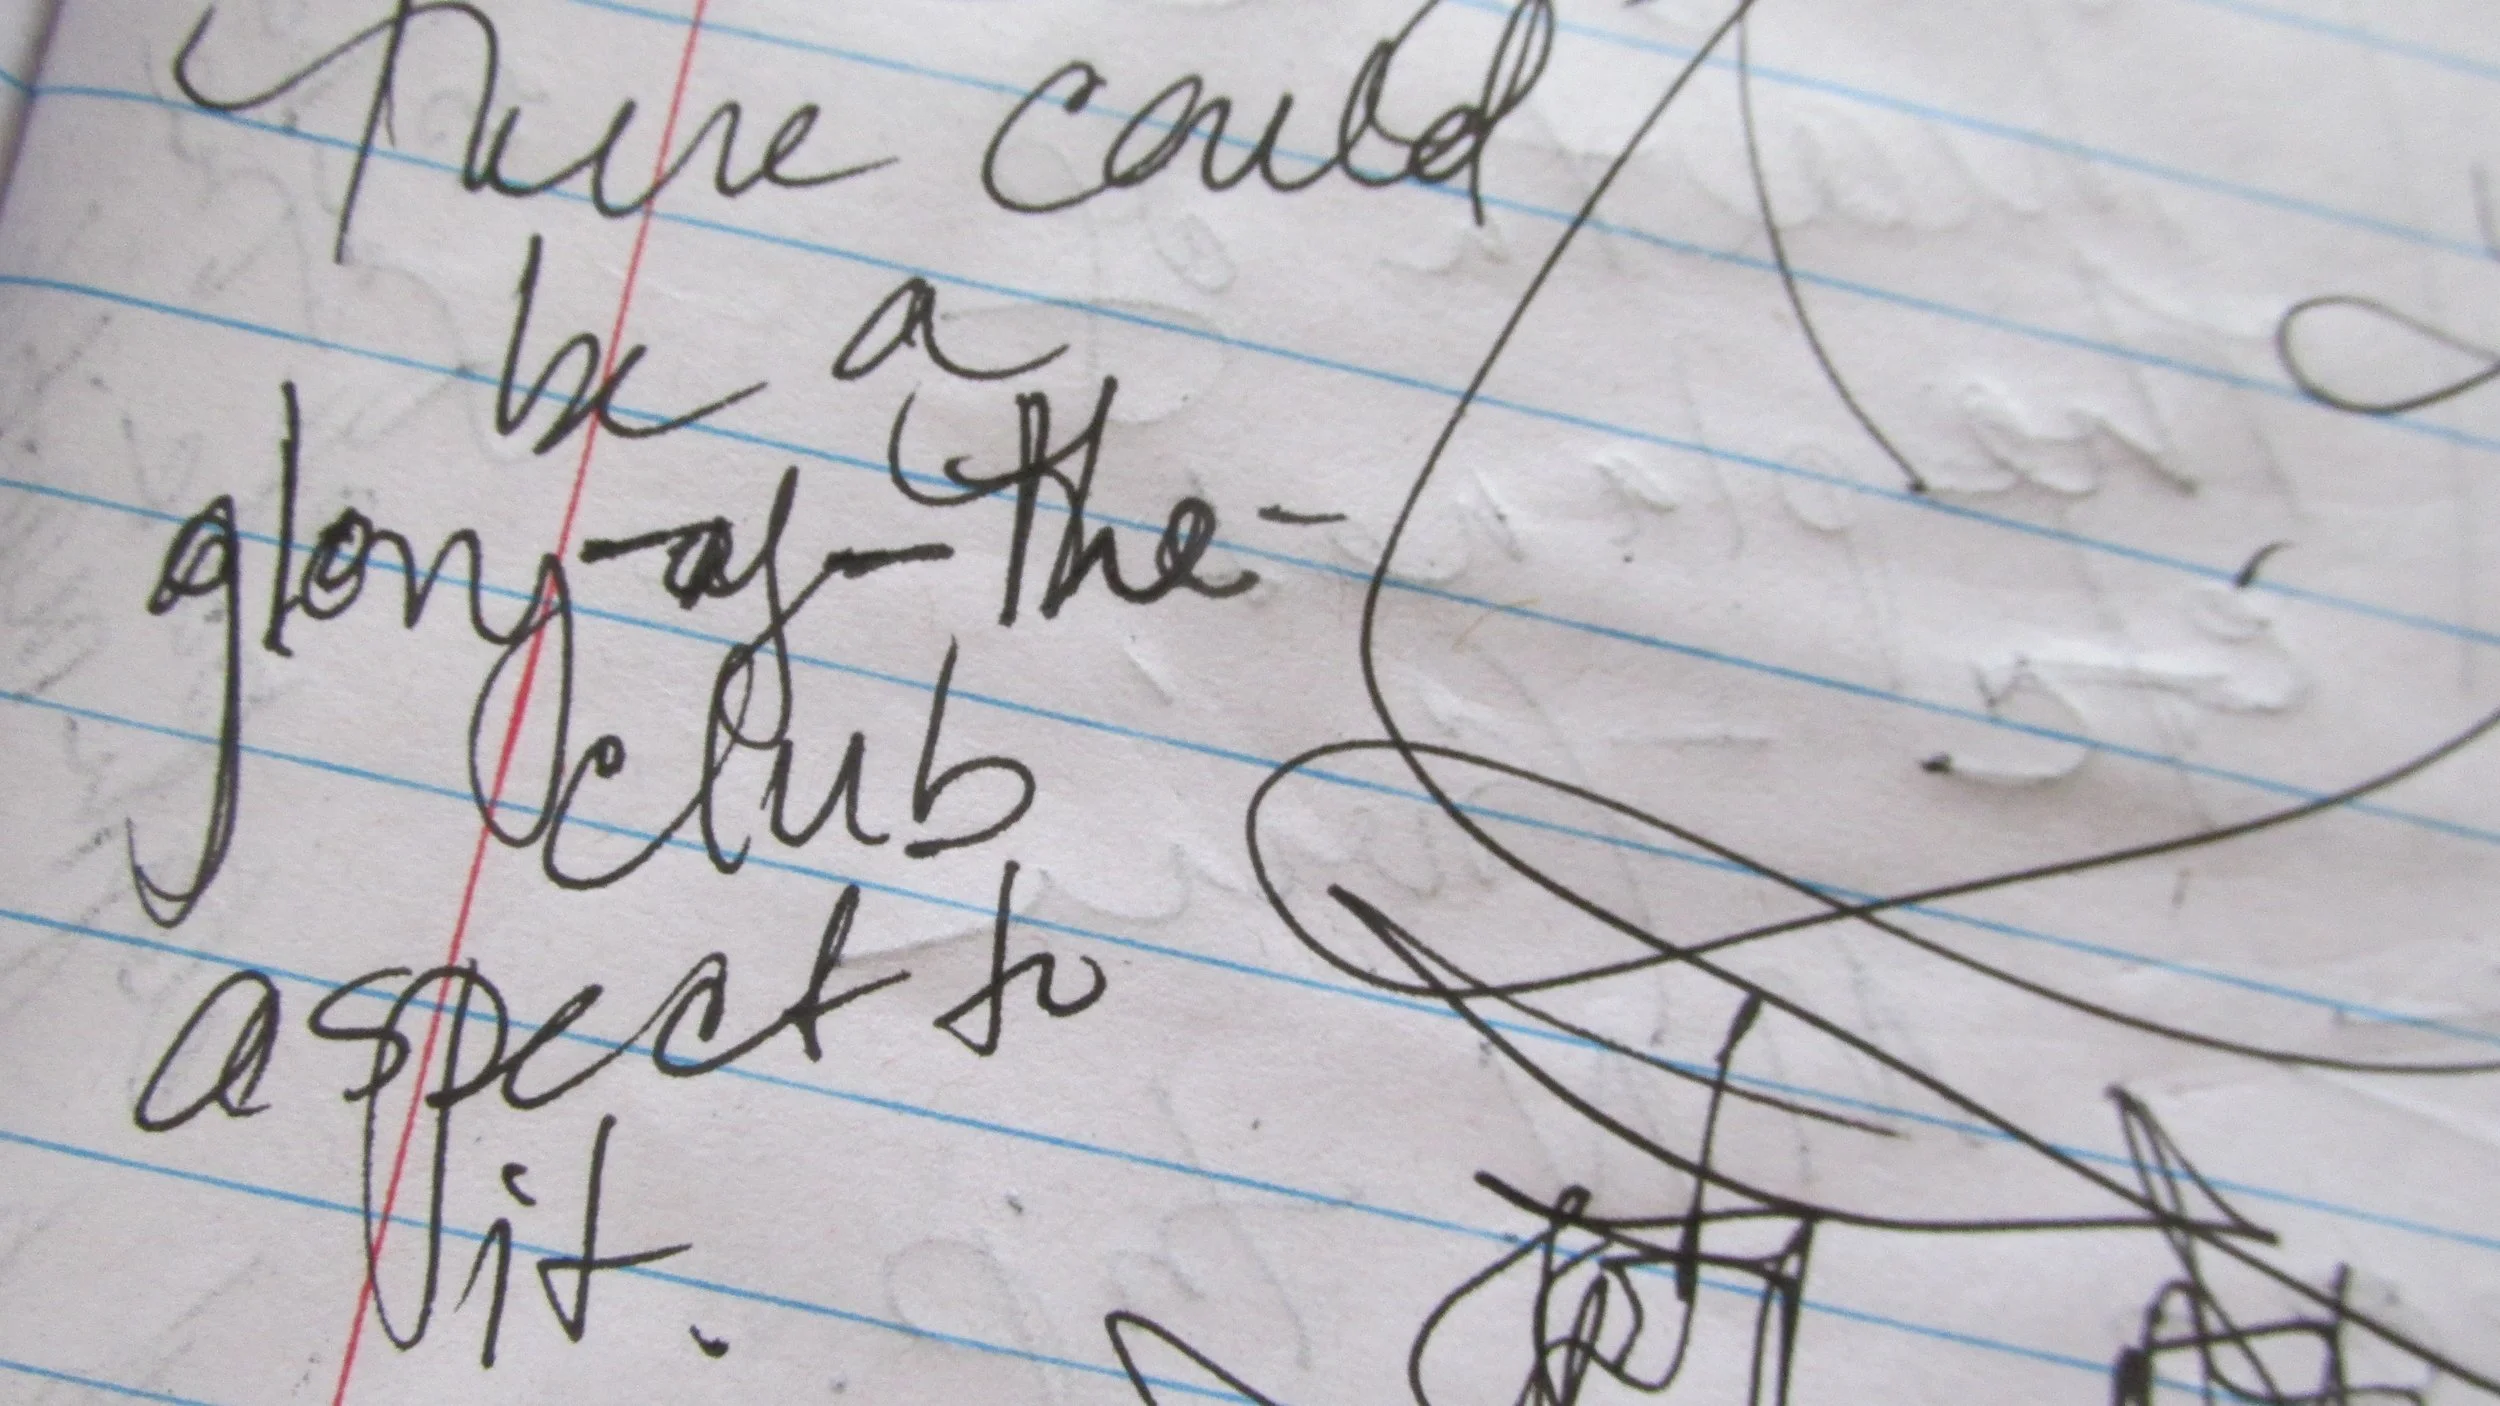 There could
be a
glory-of-the-
club
aspect to
it.